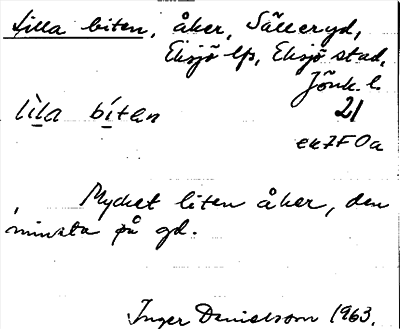 Lilla biten, åker, Sälleryd,
Eksjö lfs, Eksjö stad,
Jönk. l.
lìla bítan 21
ek7F0a
Mycket liten åker, den
minsta på gd.
Inger Danielsson 1963.